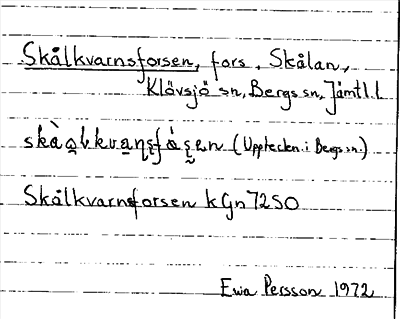 Skålkvarnsforsen, fors, Skålan,
Klövsjö sn, Bergs sn, Jämtl.l
(Uppteckn. i Bergs sn.)
Skålkvarnsforsen kGn 7250
Ewa Persson 1972